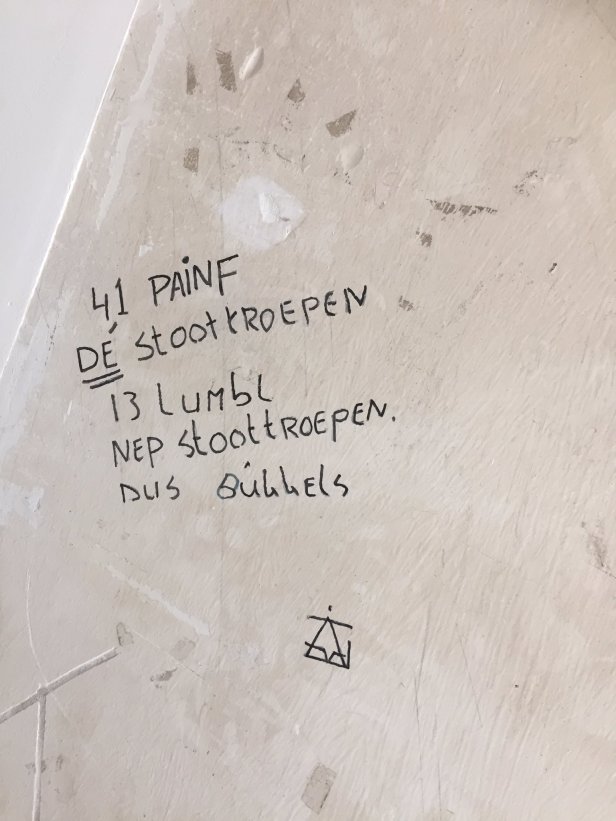 41 PAiNF
DÉ StoottROEPEN
13 LUMBL
NEP StoottROEPEN.
DUS